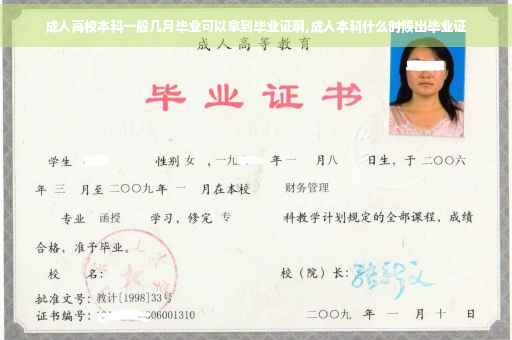 成人高校本科一般几月毕业可以拿到毕业证啊,成人本科什么时候出毕业证
成人高等教育
毕业证书
学生 性别 女 ，一九 年 一 月 八 日生，于 二〇〇六
年 三 月至 二〇〇九 年 一 月在本校 财务管理
专业 函授 学习，修完 专 科教学计划规定的全部课程，成绩
合格，准予毕业。
校 名： 校（院）长：
批准文号：教计[1998]33号
证书编号： 06001310 二〇〇九 年 一 月 十 日